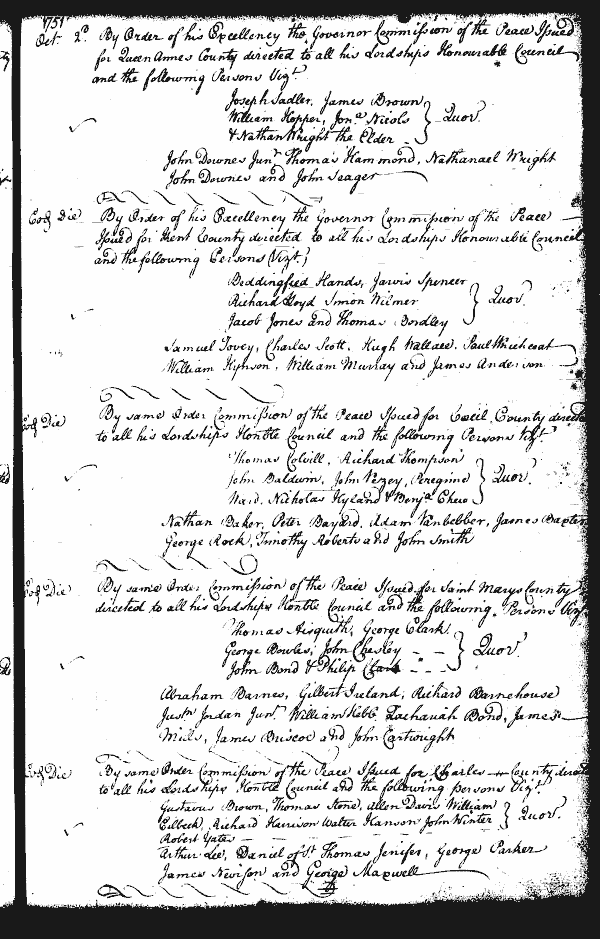 1751
Oct. 2d By Order of his Excellency the Governor Commission of the Peace Issued
for Queen Annes County directed to all his Lordships Honourable Council
and the following Persons Vizt.
Joseph Sadler, James Brown
William Hopper, Jona. Nicols } Quor.
& Nathan Wright the Elder
John Downes Junr. Thomas Hammond, Nathanael Wright
John Downes and John Seager
Eod Die By Order of his Excellency the Governor Commission of the Peace
Issued for Kent County directed to all his Lordships Honourable Council
and the following Persons (Vizt.)
Beddingfied Hands, Jarvis Spencer
Richard Lloyd Simon Wilmer } Quor.
Jacob Jones and Thomas Bordley
Samuel Tovey, Charles Scott, Hugh Wallace, Paul Whichcoat
William Hynson, William Murray and James Anderson
Eod Die By same Order Commission of the Peace Issued for Cecil County directed
to all his Lordships Honble Council and the following Persons Vizt.
Thomas Colvill, Richard Thompson
John Baldwin, John Vezey, Peregrine } Quor.
Ward, Nicholas Hyland & Benja. Chew
Nathan Baker, Peter Bayard, Adam Vanbebber, James Baxter
George Rock, Timothy Roberts and John Smith
Eod Die By same Order Commission of the Peace Issued for Saint Marys County
directed to all his Lordships Honble Council and the following Persons Vizt.
Thomas Aisquith, George Clark
George Bowles, John Chesley } Quor.
John Bond & Philip Clark
Abraham Barnes, Gilbert Ireland, Richard Barnehouse
Justn Jordan Junr. William Hebb Zachariah Bond, James
Mills, James Briscoe and John Cartwright
Eod Die By same Order Commission of the Peace Issued for Charles County directed
to all his Lordships Honble Council and the following persons Vizt.
Gustavus Brown, Thomas Stone, Allen Davis William
Eilbeck, Richard Harrison Walter Hanson John Winter } Quor.
Robert Yates
Arthur Lee, Daniel of St. Thomas Jenifer, George Parker
James Nevison and George Maxwell